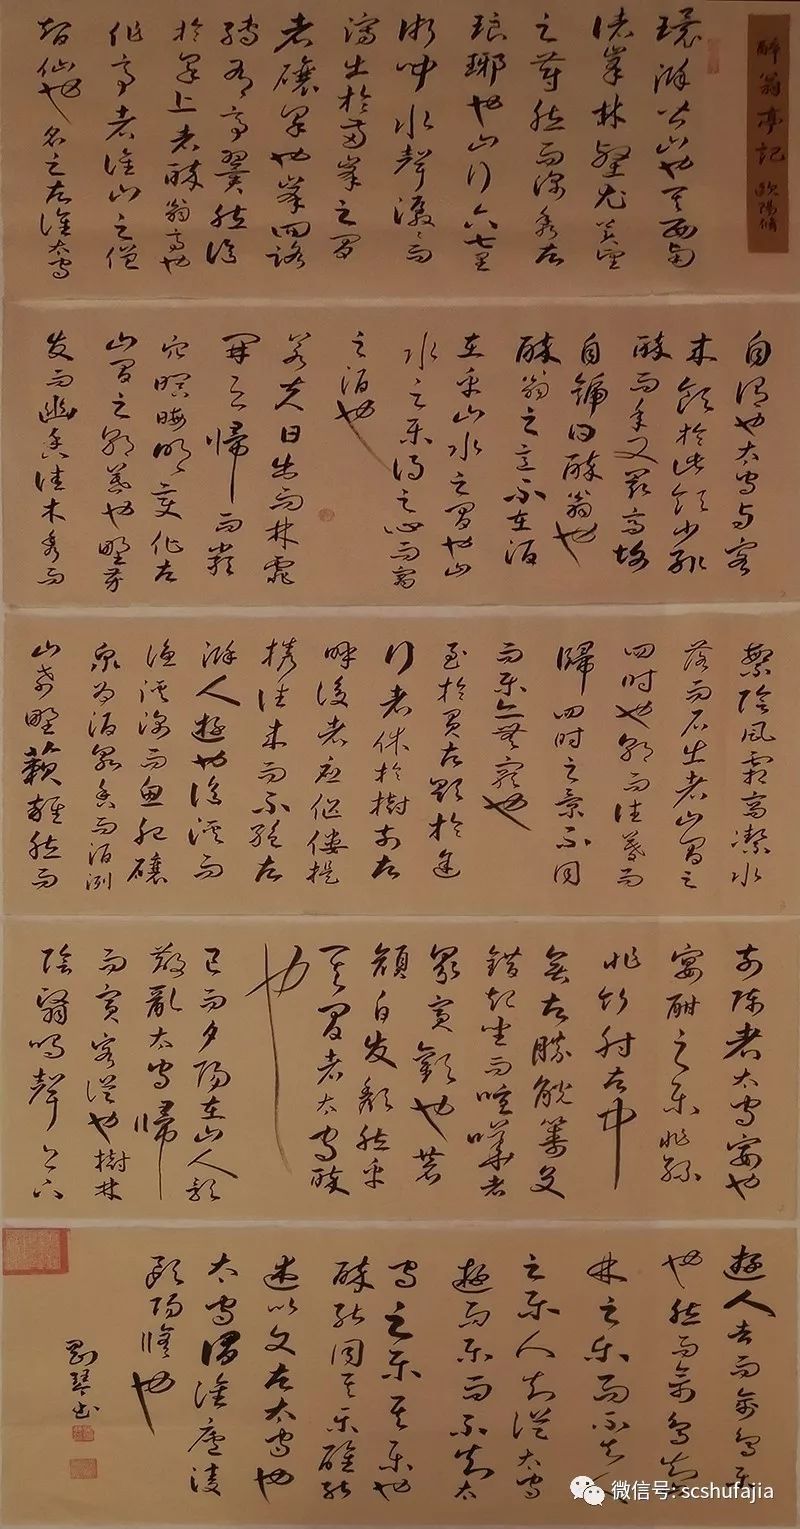 醉翁亭記 歐陽脩
環滁皆山也其西南
诸峯林壑尤美望
之蔚然而深秀者
琅琊也山行六七里
漸聞水聲潺々而
瀉出於兩峯之間
者釀泉也峯回路
轉有亭翼然臨
於泉上者醉翁亭也
作亭者誰山之僧
智仙也名之者誰太守
自謂也太守与客
来飲於此飲少輒
醉而年又最高故
自號曰醉翁也
醉翁之意不在酒
在乎山水之間也山
水之樂得之心而寓
之酒也
若夫日出而林霏
開雲歸而巖
穴暝晦明變化者
山間之朝暮也野芳
发而幽香佳木秀而
繁陰風霜高潔水
落而石出者山間之
四時也朝而往暮而
歸四時之景不同
而樂亦無窮也
至於負者歌於途
行者休於樹前者
呼後者應傴僂提
攜往来而不絕者
滁人遊也臨溪而
漁溪深而魚肥釀
泉为酒泉香而酒洌
山肴野蔌雜然而
前陳者太守宴也
宴酣之樂非絲
非竹射者中
弈者勝觥籌交
錯起坐而喧嘩者
眾賓歡也蒼
顏白发頹然乎
其間者太守醉
也
已而夕陽在山人影
散亂太守歸
而賓客從也樹林
陰翳鳴聲上下
遊人去而禽鳥樂
也然而禽鳥知山
林之樂而不知人
之樂人知從太守
遊而樂而不知太
守之樂其樂也
醉能同其樂醒能
述以文者太守也
太守謂誰廬陵
歐陽脩也
劉琴书
微信号: scshufajia